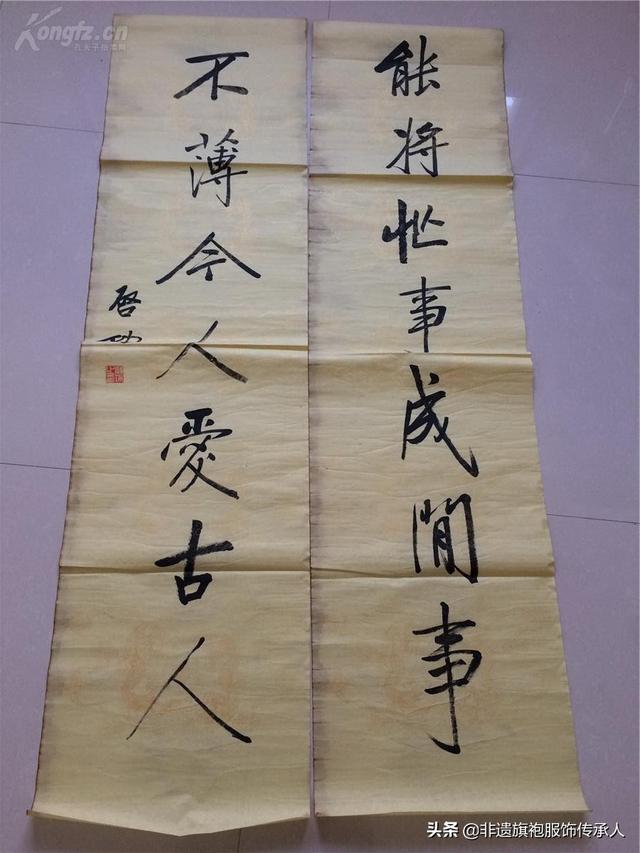 能将忙事成閒事
不薄今人愛古人
启功
Kongfz.cn
孔夫子拍卖网
头条 @非遗旗袍服饰传承人